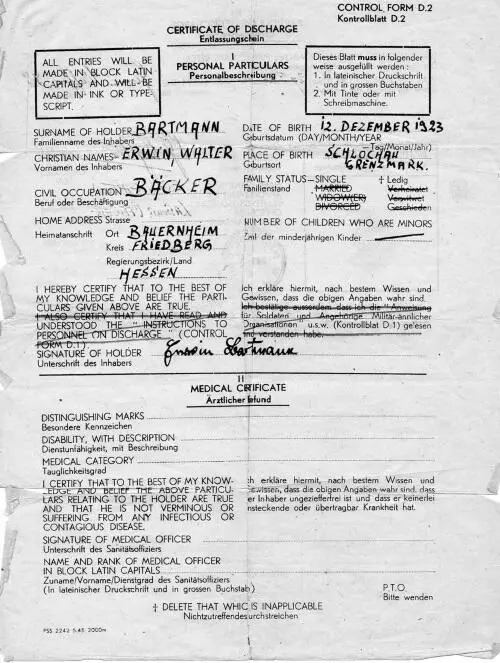 CONTROL FORM D.2
Kontrollblatt D.2
CERTIFICATE OF DISCHARGE
Entlassungschein
I
PERSONAL PARTICULARS
Personalbeschreibung
ALL ENTRIES WILL BE
MADE IN BLOCK LATIN
CAPITALS AND WILL BE
MADE IN INK OR TYPE-
SCRIPT.
Dieses Blatt muss in folgender
weise ausgefüllt werden:
1. In lateinischer Druckschrift
und in grossen Buchstaben
2. Mit Tinte oder mit
Schreibmaschine.
SURNAME OF HOLDER BARTMANN
Familienname des Inhabers
CHRISTIAN NAMES ERWIN WALTER
Vornamen des Inhabers
CIVIL OCCUPATION BÄCKER
Beruf oder Beschäftigung
HOME ADDRESS Strasse
Heimatanschrift Ort BAUERNHEIM
Kreis FRIEDBERG
Regierungsbezirk/Land
HESSEN
DATE OF BIRTH 12. DEZEMBER 1923
Geburtsdatum (DAY/MONTH/YEAR
Tag/Monat/Jahr)
PLACE OF BIRTH SCHLOCHAU
Geburtsort GRENZMARK.
FAMILY STATUS—SINGLE ‡ Ledig
Familienstand MARRIED Verheiratet
WIDOW(ER) Verwitwet
DIVORCED Geschieden
NUMBER OF CHILDREN WHO ARE MINORS
Zahl der minderjährigen Kinder
I HEREBY CERTIFY THAT TO THE BEST OF
MY KNOWLEDGE AND BELIEF THE PARTI-
CULARS GIVEN ABOVE ARE TRUE.
I ALSO CERTIFY THAT I HAVE READ AND
UNDERSTOOD THE "INSTRUCTIONS TO
PERSONNEL ON DISCHARGE" (CONTROL
FORM D.1)
SIGNATURE OF HOLDER Erwin Bartmann
Unterschrift des Inhabers
Ich erkläre hiermit, nach bestem Wissen und
Gewissen, dass die obigen Angaben wahr sind.
Ich bestätige ausserdem dass ich die "Anweisung
für Soldaten und Angehörige Militär-ännlicher
Organisationen u.s.w. (Kontrollblatt D.1) gelesen
und verstanden habe.
II
MEDICAL CRTIFICATE
Ärztlicher Befund
DISTINGUISHING MARKS
Besondere Kennzeichen
DISABILITY, WITH DESCRIPTION
Dienstunfähigkeit, mit Beschreibung
MEDICAL CATEGORY
Tauglichkeitsgrad
I CERTIFY THAT TO THE BEST OF MY KNOW-
LEDGE AND BELIEF THE ABOVE PARTICU-
LARS RELATING TO THE HOLDER ARE TRUE
AND THAT HE IS NOT VERMINOUS OR
SUFFERING FROM ANY INFECTIOUS OR
CONTAGIOUS DISEASE.
ch erkläre hiermit, nach bestem Wissen und
Gewissen, dass die obigen Angaben wahr sind, dass
er Inhaber ungezieferfrei ist und dass er keinerlei
nsteckende oder übertragbar Krankheit hat.
SIGNATURE OF MEDICAL OFFICER
Unterschrift des Sanitätsoffiziers
NAME AND RANK OF MEDICAL OFFICER
IN BLOCK LATIN CAPITALS
Zuname/Vorname/Dienstgrad des Sanitätsoffiziers
(In lateinischer Druckschrift und in grossen Buchstab)
P.T.O.
Bitte wenden
‡ DELETE THAT WHIC IS INAPPLICABLE
Nichtzutreffendes durchstreichen
PSS 2242 5.45 2000m